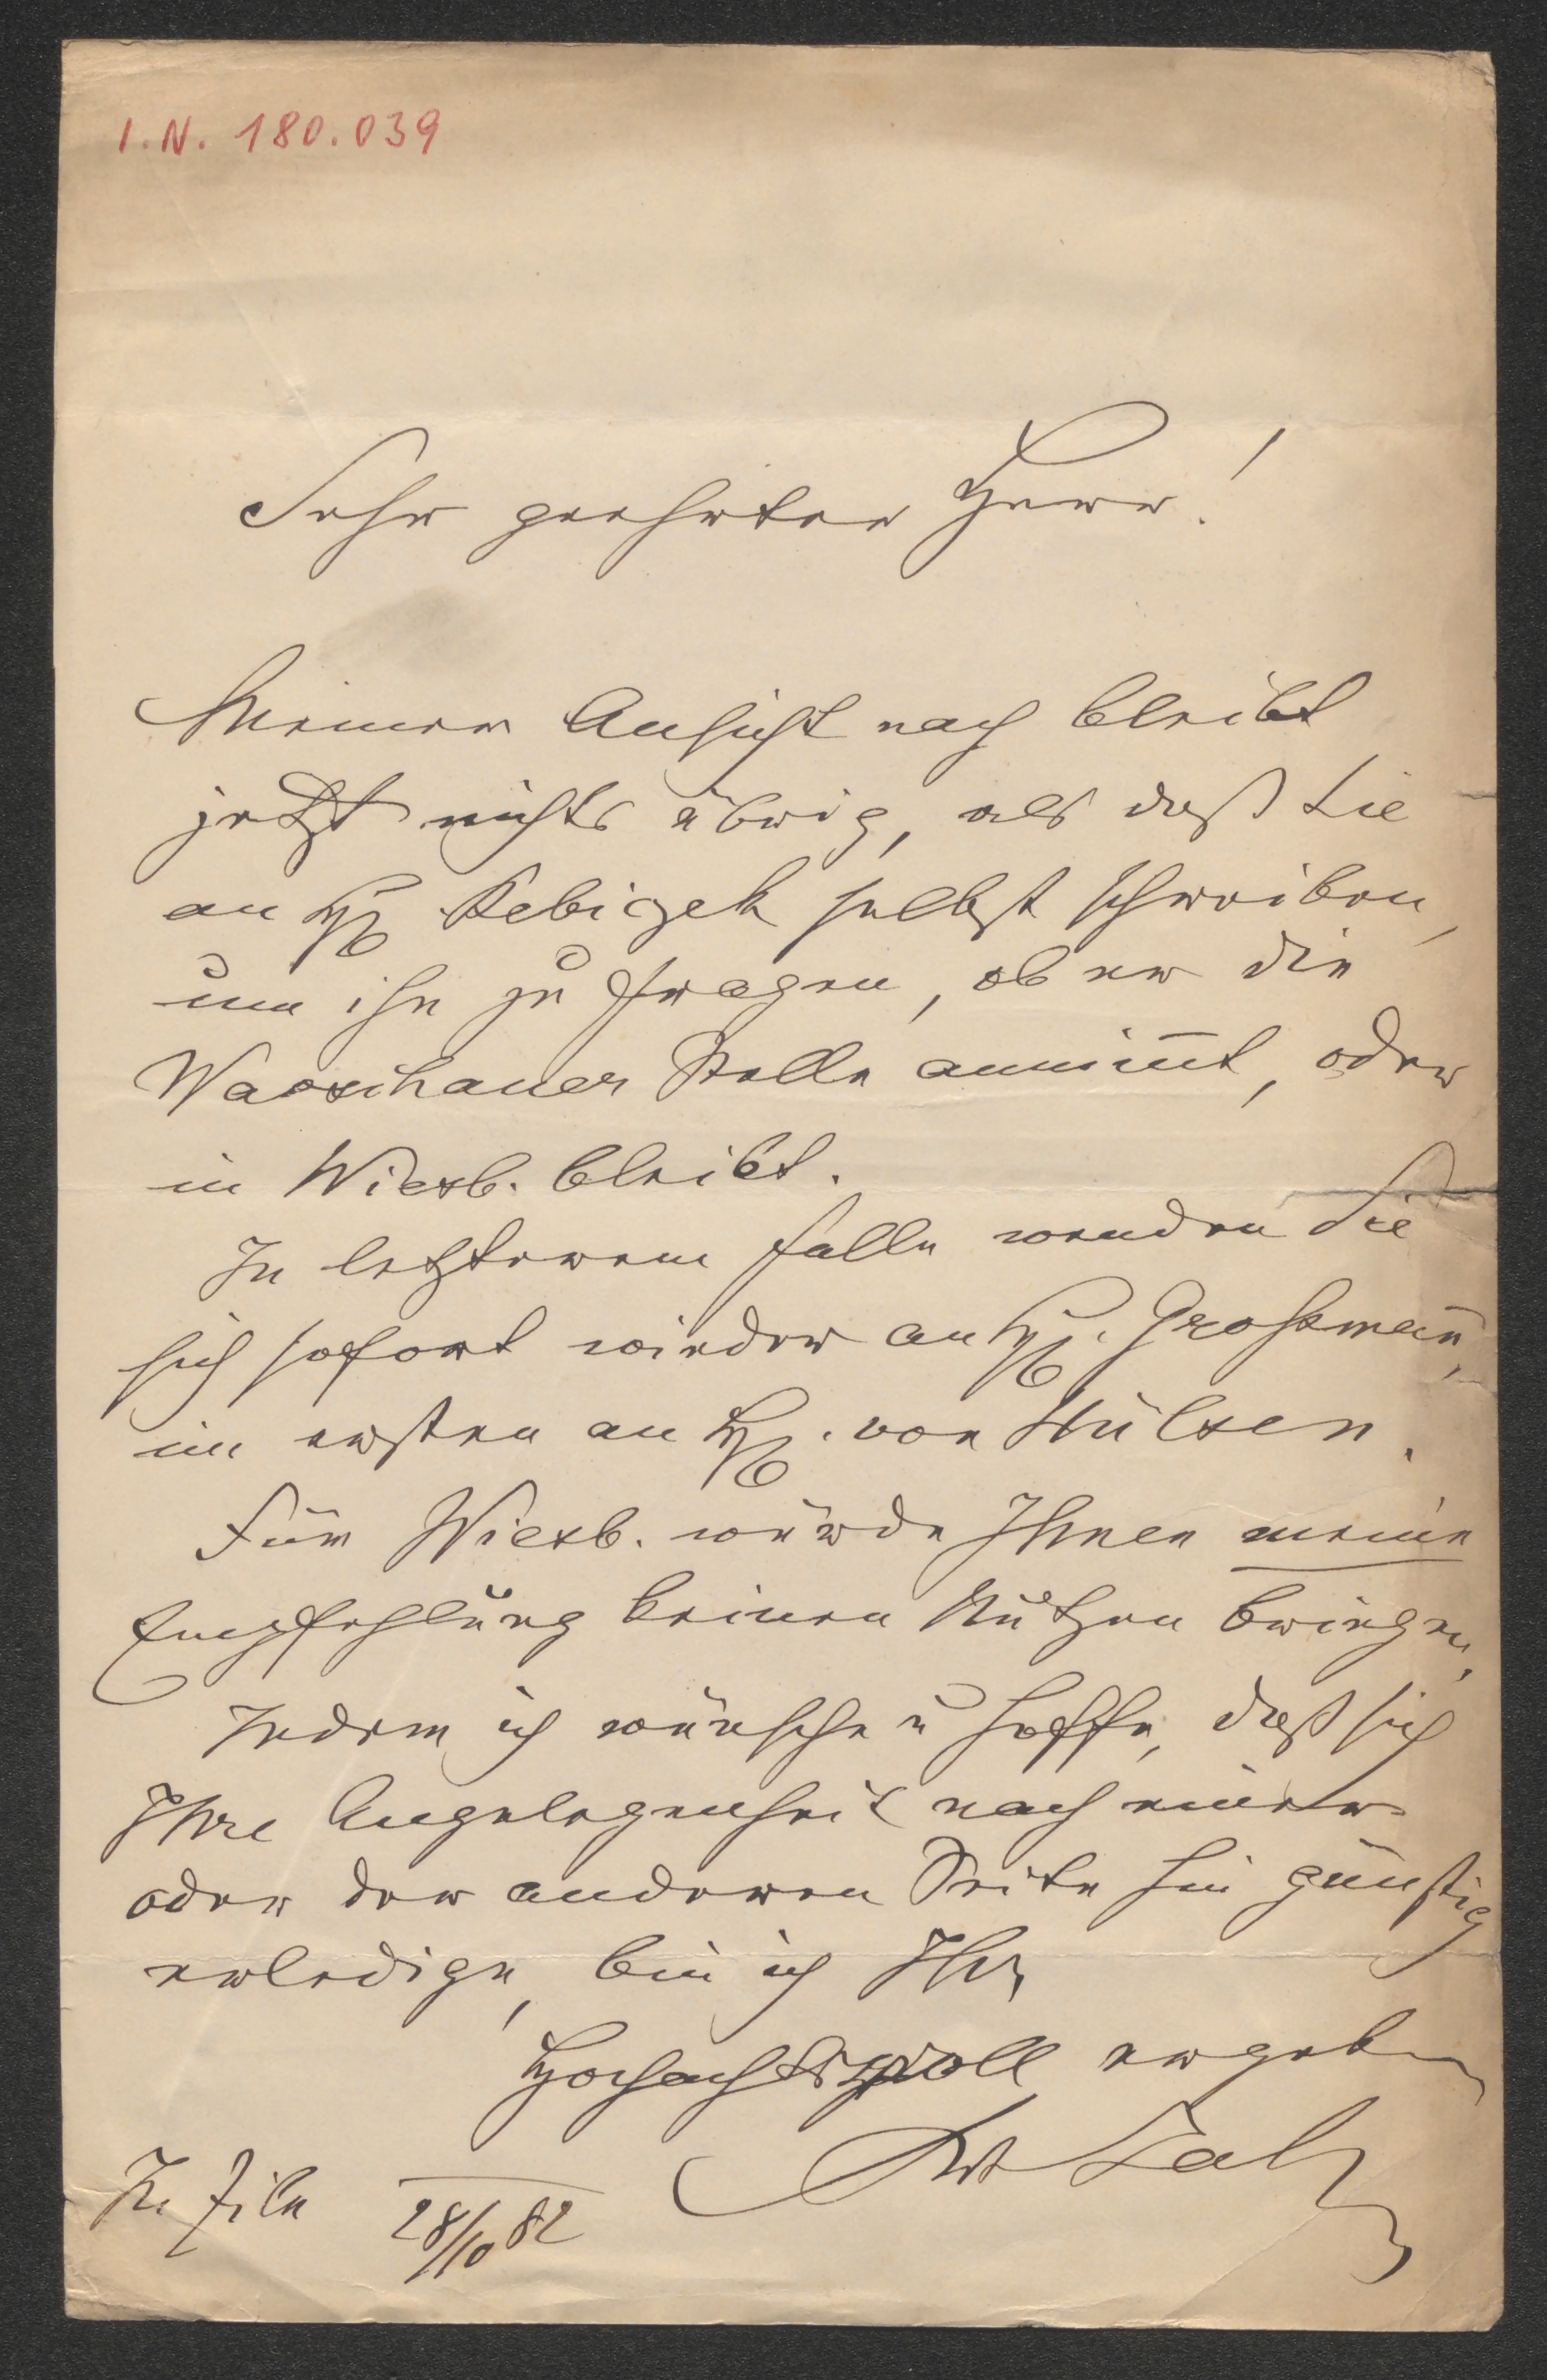 I.N. 180.039
Sehr geehrter Herr!
Meiner Ansicht nach bleibt
jetzt nichts übrig, als daß Sie
an H. Rebiczek selbst schreiben,
um ihn zu fragen, ob er die
Warschauer Stelle annim̅t, oder
in Wiesb. bleibt.
In letzterem Falle wenden Sie
sich sofort wieder an H. Großman̅,
im ersten an H. von Hülsen.
Für Wiesb. würde Ihnen meine
Empfehlung keinen Nutzen bringen.
Indem ich wünsche u hoffe, daß sich
Ihre Angelegenheit nach einer
oder der anderen Seite hin günstig
erledige, bin ich Ihr
Hochachtgsvoll ergeben
In Eile 28/10 82